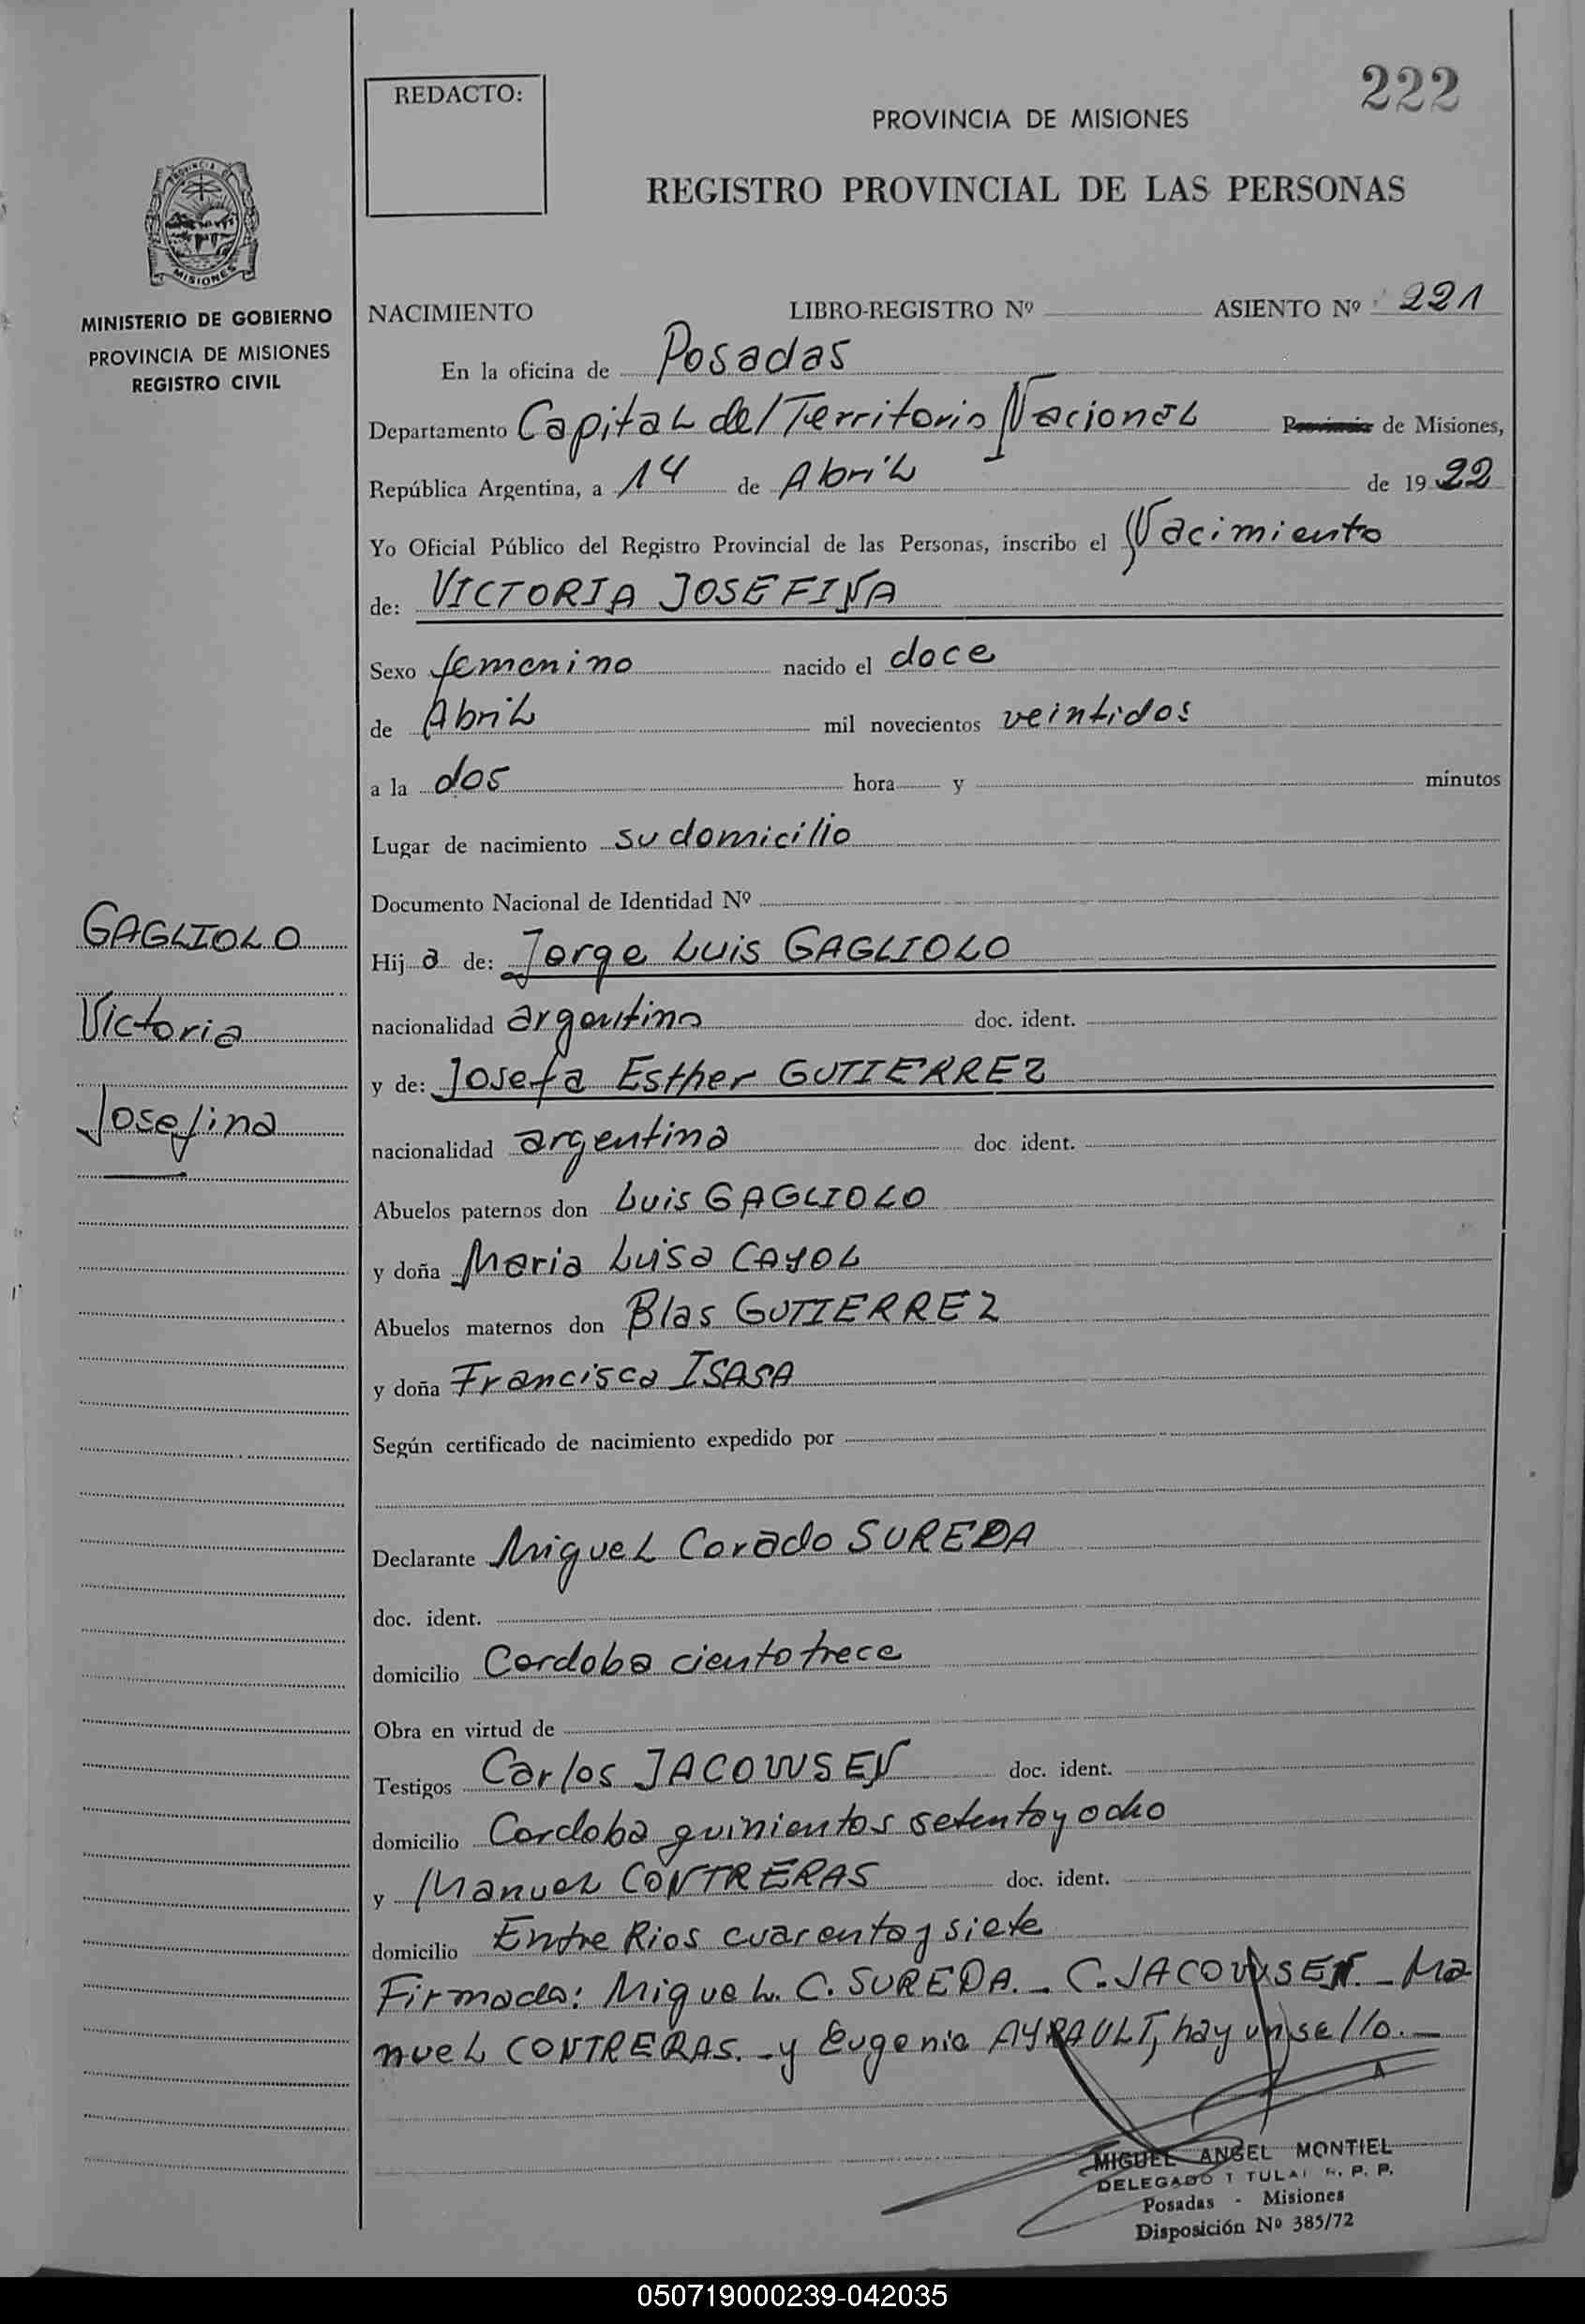 222
REDACTO:
PROVINCIA DE MISIONES
REGISTRO PROVINCIAL DE LAS PERSONAS
PROVINCIA DE
MISIONES
MINISTERIO DE GOBIERNO
PROVINCIA DE MISIONES
REGISTRO CIVIL
NACIMIENTO LIBRO-REGISTRO Nº ASIENTO Nº 221
En la oficina de Posadas
Departamento Capital del Territorio Nacional Provincia de Misiones,
República Argentina, a 14 de Abril de 1922
Yo Oficial Público del Registro Provincial de las Personas, inscribo el Nacimiento
de: VICTORIA JOSEFINA
Sexo femenino nacido el doce
de Abril mil novecientos veintidos
a la dos hora y minutos
Lugar de nacimiento su domicilio
Documento Nacional de Identidad Nº
GAGLIOLO
Victoria
Josefina
Hija de: Jorge Luis GAGLIOLO
nacionalidad argentino doc. ident.
y de: Josefa Esther GUTIERREZ
nacionalidad argentina doc ident.
Abuelos paternos don Luis GAGLIOLO
y doña Maria Luisa CAYOL
Abuelos maternos don Blas GUTIERREZ
y doña Francisca ISASA
Según certificado de nacimiento expedido por
Declarante Miguel Corado SUREDA
doc. ident.
domicilio Cordoba ciento trece
Obra en virtud de
Testigos Carlos JACOWSEN doc. ident.
domicilio Cordoba quinientos setenta y ocho
y Manuel CONTRERAS doc. ident.
domicilio Entre Rios cuarenta y siete
Firmado: Miguel. C. SUREDA. - C. JACOWSEN. - Ma
nuel CONTRERAS. - y Eugenio AYRAULT, hay un sello. -
MIGUEL ANGEL MONTIEL
DELEGADO R. P. P.
Posadas - Misiones
Disposición Nº 385/72
050719000239-042035